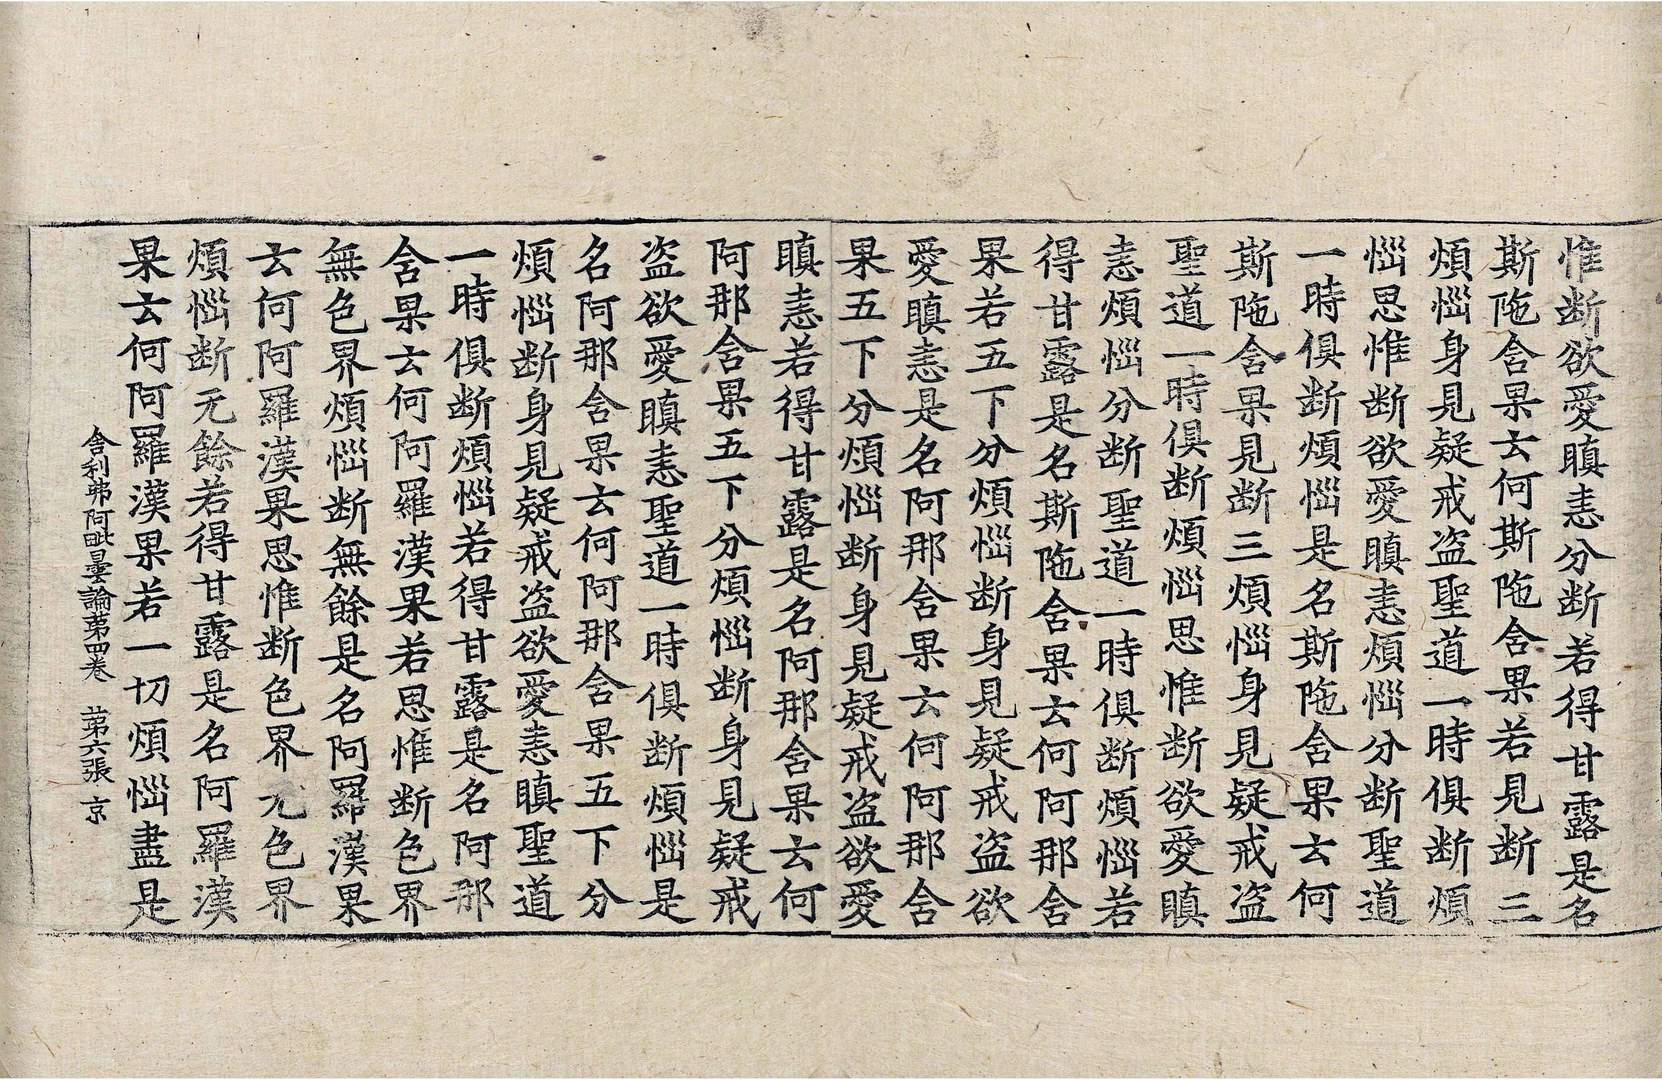 惟断欲愛瞋恚分断若得甘露是名
斯陁含果云何斯陁含果若見断三
煩惱身見疑戒盗聖道一時俱断煩
惱思惟断欲愛瞋恚煩惱分断聖道
一時俱断煩惱是名斯陁含果云何
斯陁含果見断三煩惱身見疑戒盗
聖道一時俱断煩惱思惟断欲愛瞋
恚煩惱分断聖道一時俱断煩惱若
得甘露是名斯陁含果云何阿那含
果若五下分煩惱断身見疑戒盗欲
愛瞋恚是名阿那含果云何阿那含
果五下分煩惱断身見疑戒盗欲愛
瞋恚若得甘露是名阿那含果云何
阿那含果五下分煩惱断身見疑戒
盗欲愛瞋恚聖道一時俱断煩惱是
名阿那含果云何阿那含果五下分
煩惱断身見疑戒盗欲愛恚瞋聖道
一時俱断煩惱若得甘露是名阿那
含果云何阿羅漢果若思惟断色界
無色界煩惱断無餘是名阿羅漢果
云何阿羅漢果思惟断色界无色界
煩惱断无餘若得甘露是名阿羅漢
果云何阿羅漢果若一切煩惱盡是
舍利弗阿毗曇論第四卷 第六張 京